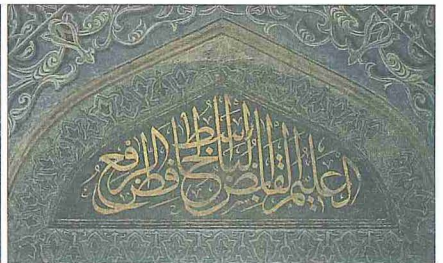 العليم القابض الباسط الخافض الرافع